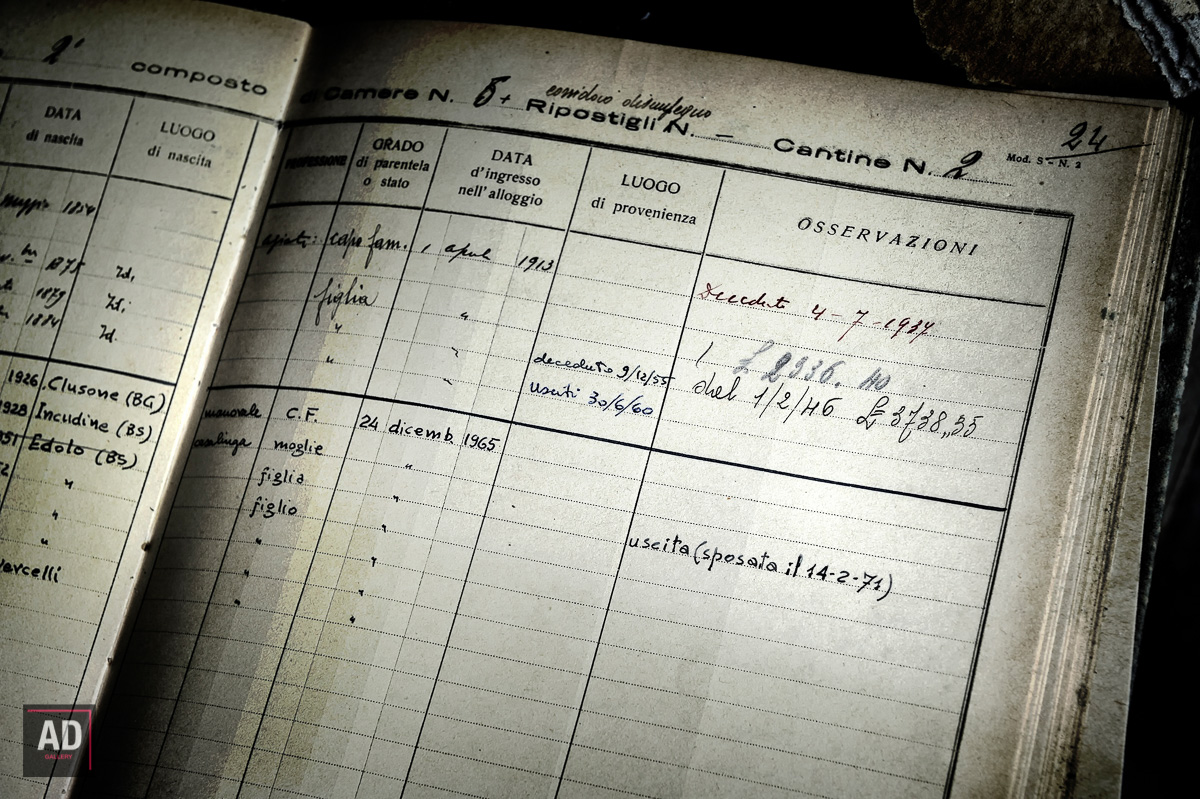 2° composto
di Camere N. 5+ corridoio disimpegno
Ripostigli N. — Cantine N. 2
24
Mod. S - N. 2
DATA di nascita
LUOGO di nascita
PROFESSIONE
GRADO di parentela o stato
DATA d'ingresso nell'alloggio
LUOGO di provenienza
OSSERVAZIONI
1854
capo fam. 1 aprile 1913
Deceduto 4-7-1937
1875 Id.
figlia "
1879 Id.
" "
£ 2936. 40
1884 Id.
" " deceduto 9/12/55
dal 1/2/46 £ 3738,,35
usciti 30/6/60
1926 Clusone (BG) manovale C.F. 24 dicemb. 1965
1928 Incudine (BS) casalinga moglie "
951 Edolo (BS) figlia "
uscita (sposata il 14-2-71)
52 " figlio "
" " "
" " "
" "
AD
GALLERY